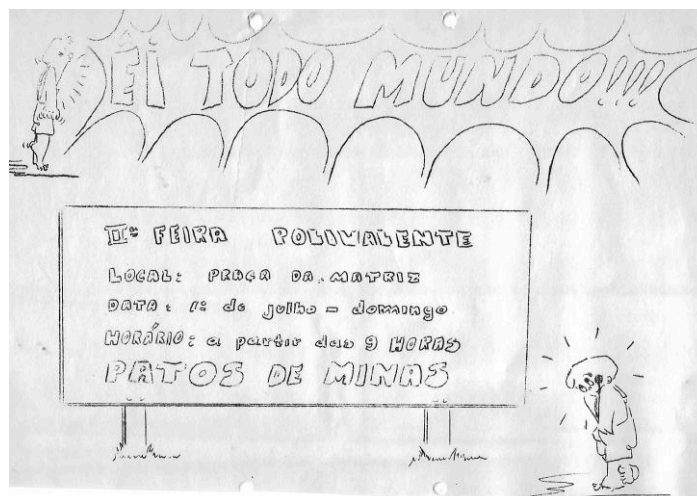 ÊI TODO MUNDO!!!
IIª FEIRA POLIVALENTE
LOCAL: PRAÇA DA MATRIZ
DATA: 1º de julho - domingo
HORÁRIO: a partir das 9 HORAS
PATOS DE MINAS